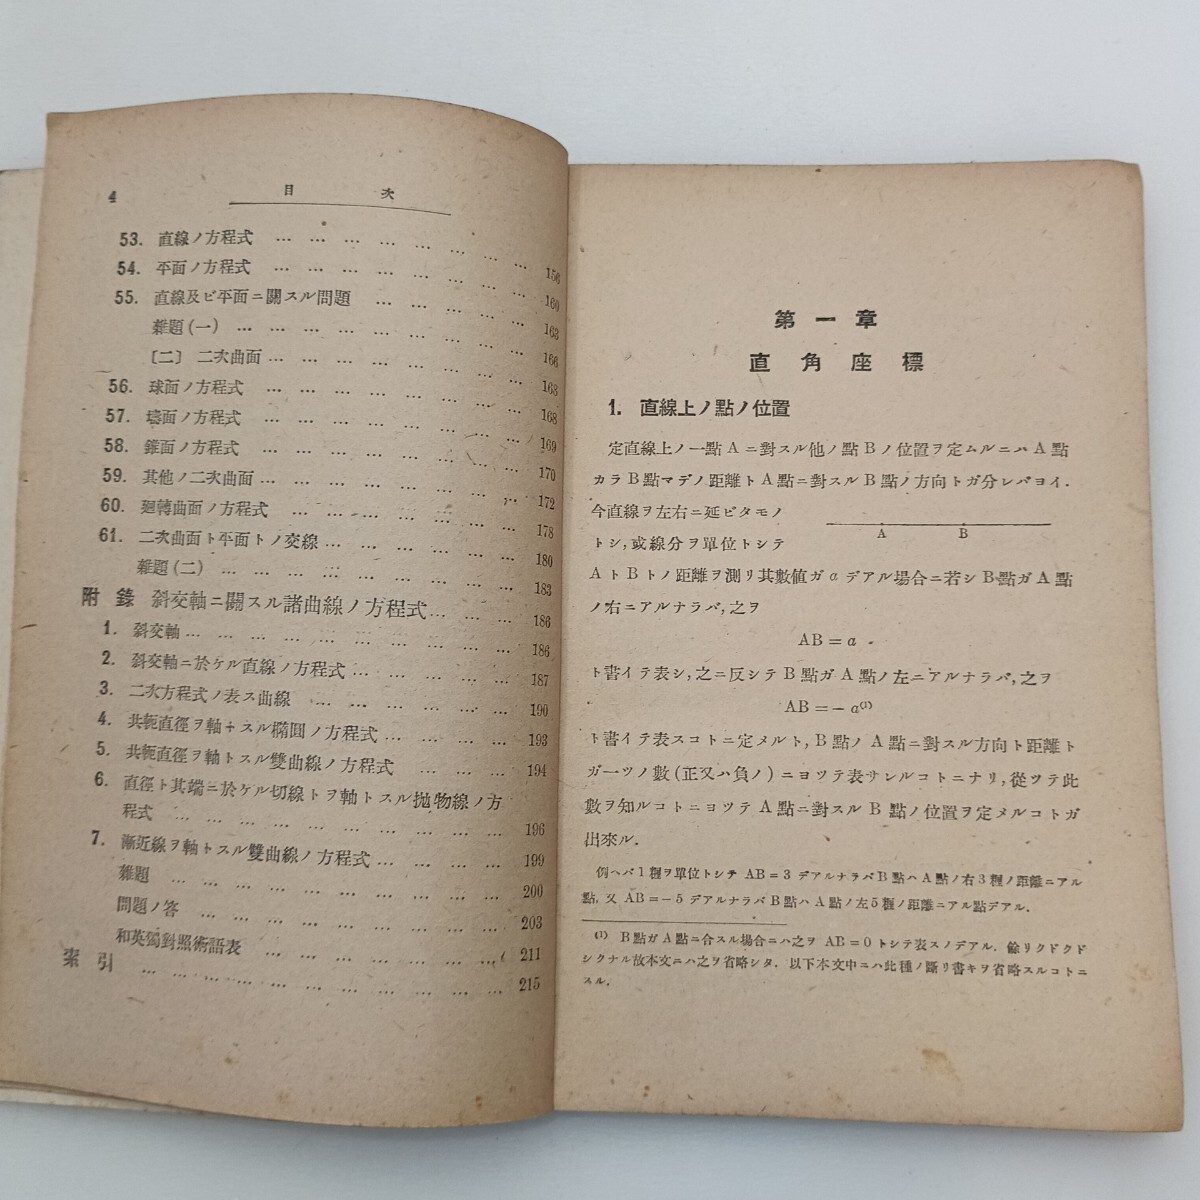 4 目次
53. 直線ノ方程式 … … … … … … … … 156
54. 平面ノ方程式 … … … … … … … … 160
55. 直線及ビ平面ニ關スル問題 … … … … … 163
雜題(一) … … … … … … … … … 166
〔二〕 二次曲面 … … … … … … … … 168
56. 球面ノ方程式 … … … … … … … … 168
57. 墻面ノ方程式 … … … … … … … … 169
58. 錐面ノ方程式 … … … … … … … … 170
59. 其他ノ二次曲面 … … … … … … … … 172
60. 廻轉曲面ノ方程式 … … … … … … … 178
61. 二次曲面ト平面トノ交線 … … … … … … 180
雜題(二) … … … … … … … … … 183
附錄 斜交軸ニ關スル諸曲線ノ方程式 … … … 186
1. 斜交軸 … … … … … … … … … … 186
2. 斜交軸ニ於ケル直線ノ方程式 … … … … … 187
3. 二次方程式ノ表ス曲線 … … … … … … … 190
4. 共軛直徑ヲ軸トスル橢圓ノ方程式 … … … … 193
5. 共軛直徑ヲ軸トスル雙曲線ノ方程式 … … … … 194
6. 直徑ト其端ニ於ケル切線トヲ軸トスル抛物線ノ方
程式 … … … … … … … … … … 196
7. 漸近線ヲ軸トスル雙曲線ノ方程式 … … … … 199
雜題 … … … … … … … … … … 200
問題ノ答 … … … … … … … … … 203
和英獨對照術語表 … … … … … … … 211
索引 … … … … … … … … … … … 215
第一章
直角座標
1. 直線上ノ點ノ位置
定直線上ノ一點 A ニ對スル他ノ點 B ノ位置ヲ定ムルニハ A 點
カラ B 點マデノ距離ト A 點ニ對スル B 點ノ方向トガ分レバヨイ.
今直線ヲ左右ニ延ビタモノ
A B
トシ,或線分ヲ單位トシテ
A ト B トノ距離ヲ測リ其數値ガ a デアル場合ニ若シ B 點ガ A 點
ノ右ニアルナラバ,之ヲ
AB = a
ト書イテ表シ,之ニ反シテ B 點ガ A 點ノ左ニアルナラバ,之ヲ
AB = − a⁽¹⁾
ト書イテ表スコトニ定メルト, B 點ノ A 點ニ對スル方向ト距離ト
ガ一ツノ數(正又ハ負ノ)ニヨツテ表サレルコトニナリ,從ツテ此
數ヲ知ルコトニヨツテ A 點ニ對スル B 點ノ位置ヲ定メルコトガ
出來ル.
例ヘバ 1 糎ヲ單位トシテ AB = 3 デアルナラバ B 點ハ A 點ノ右 3 糎ノ距離ニアル
點,又 AB = − 5 デアルナラバ B 點ハ A 點ノ左 5 糎ノ距離ニアル點デアル.
(1) B 點ガ A 點ニ合スル場合ニハ之ヲ AB = 0 トシテ表スノデアル. 餘リクドクド
シクナル故本文ニハ之ヲ省略シタ. 以下本文中ニハ此種ノ斷リ書キヲ省略スルコトニ
スル.